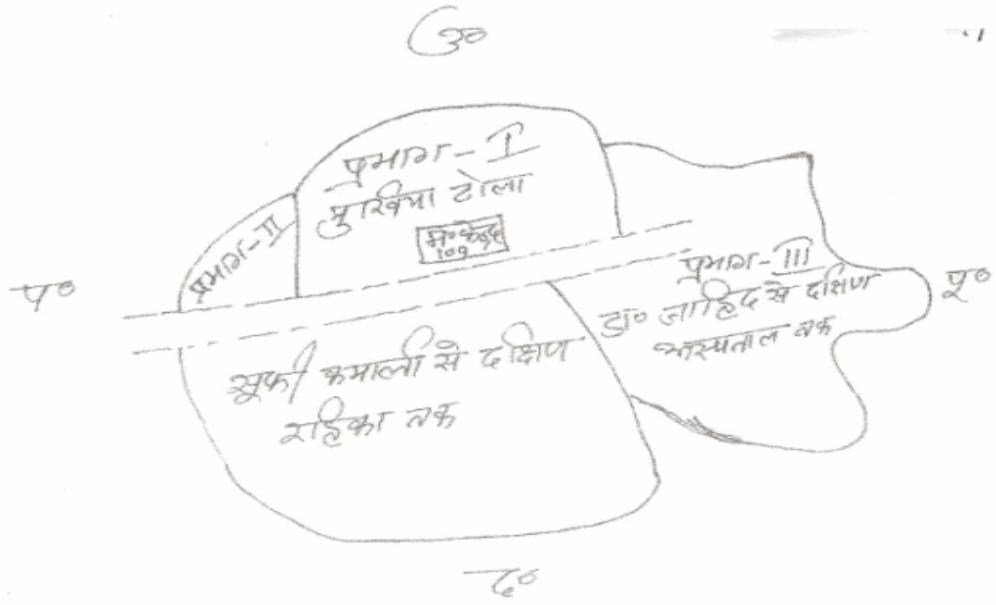 उ०
प्रभाग-I
मुखिया टोला
म० केन्द्र
109
प्रभाग-II
प०
पू०
प्रभाग-III
डा० जाहिद से दक्षिण
अस्पताल तक
सूफी कमाली से दक्षिण
राहिका तक
द०